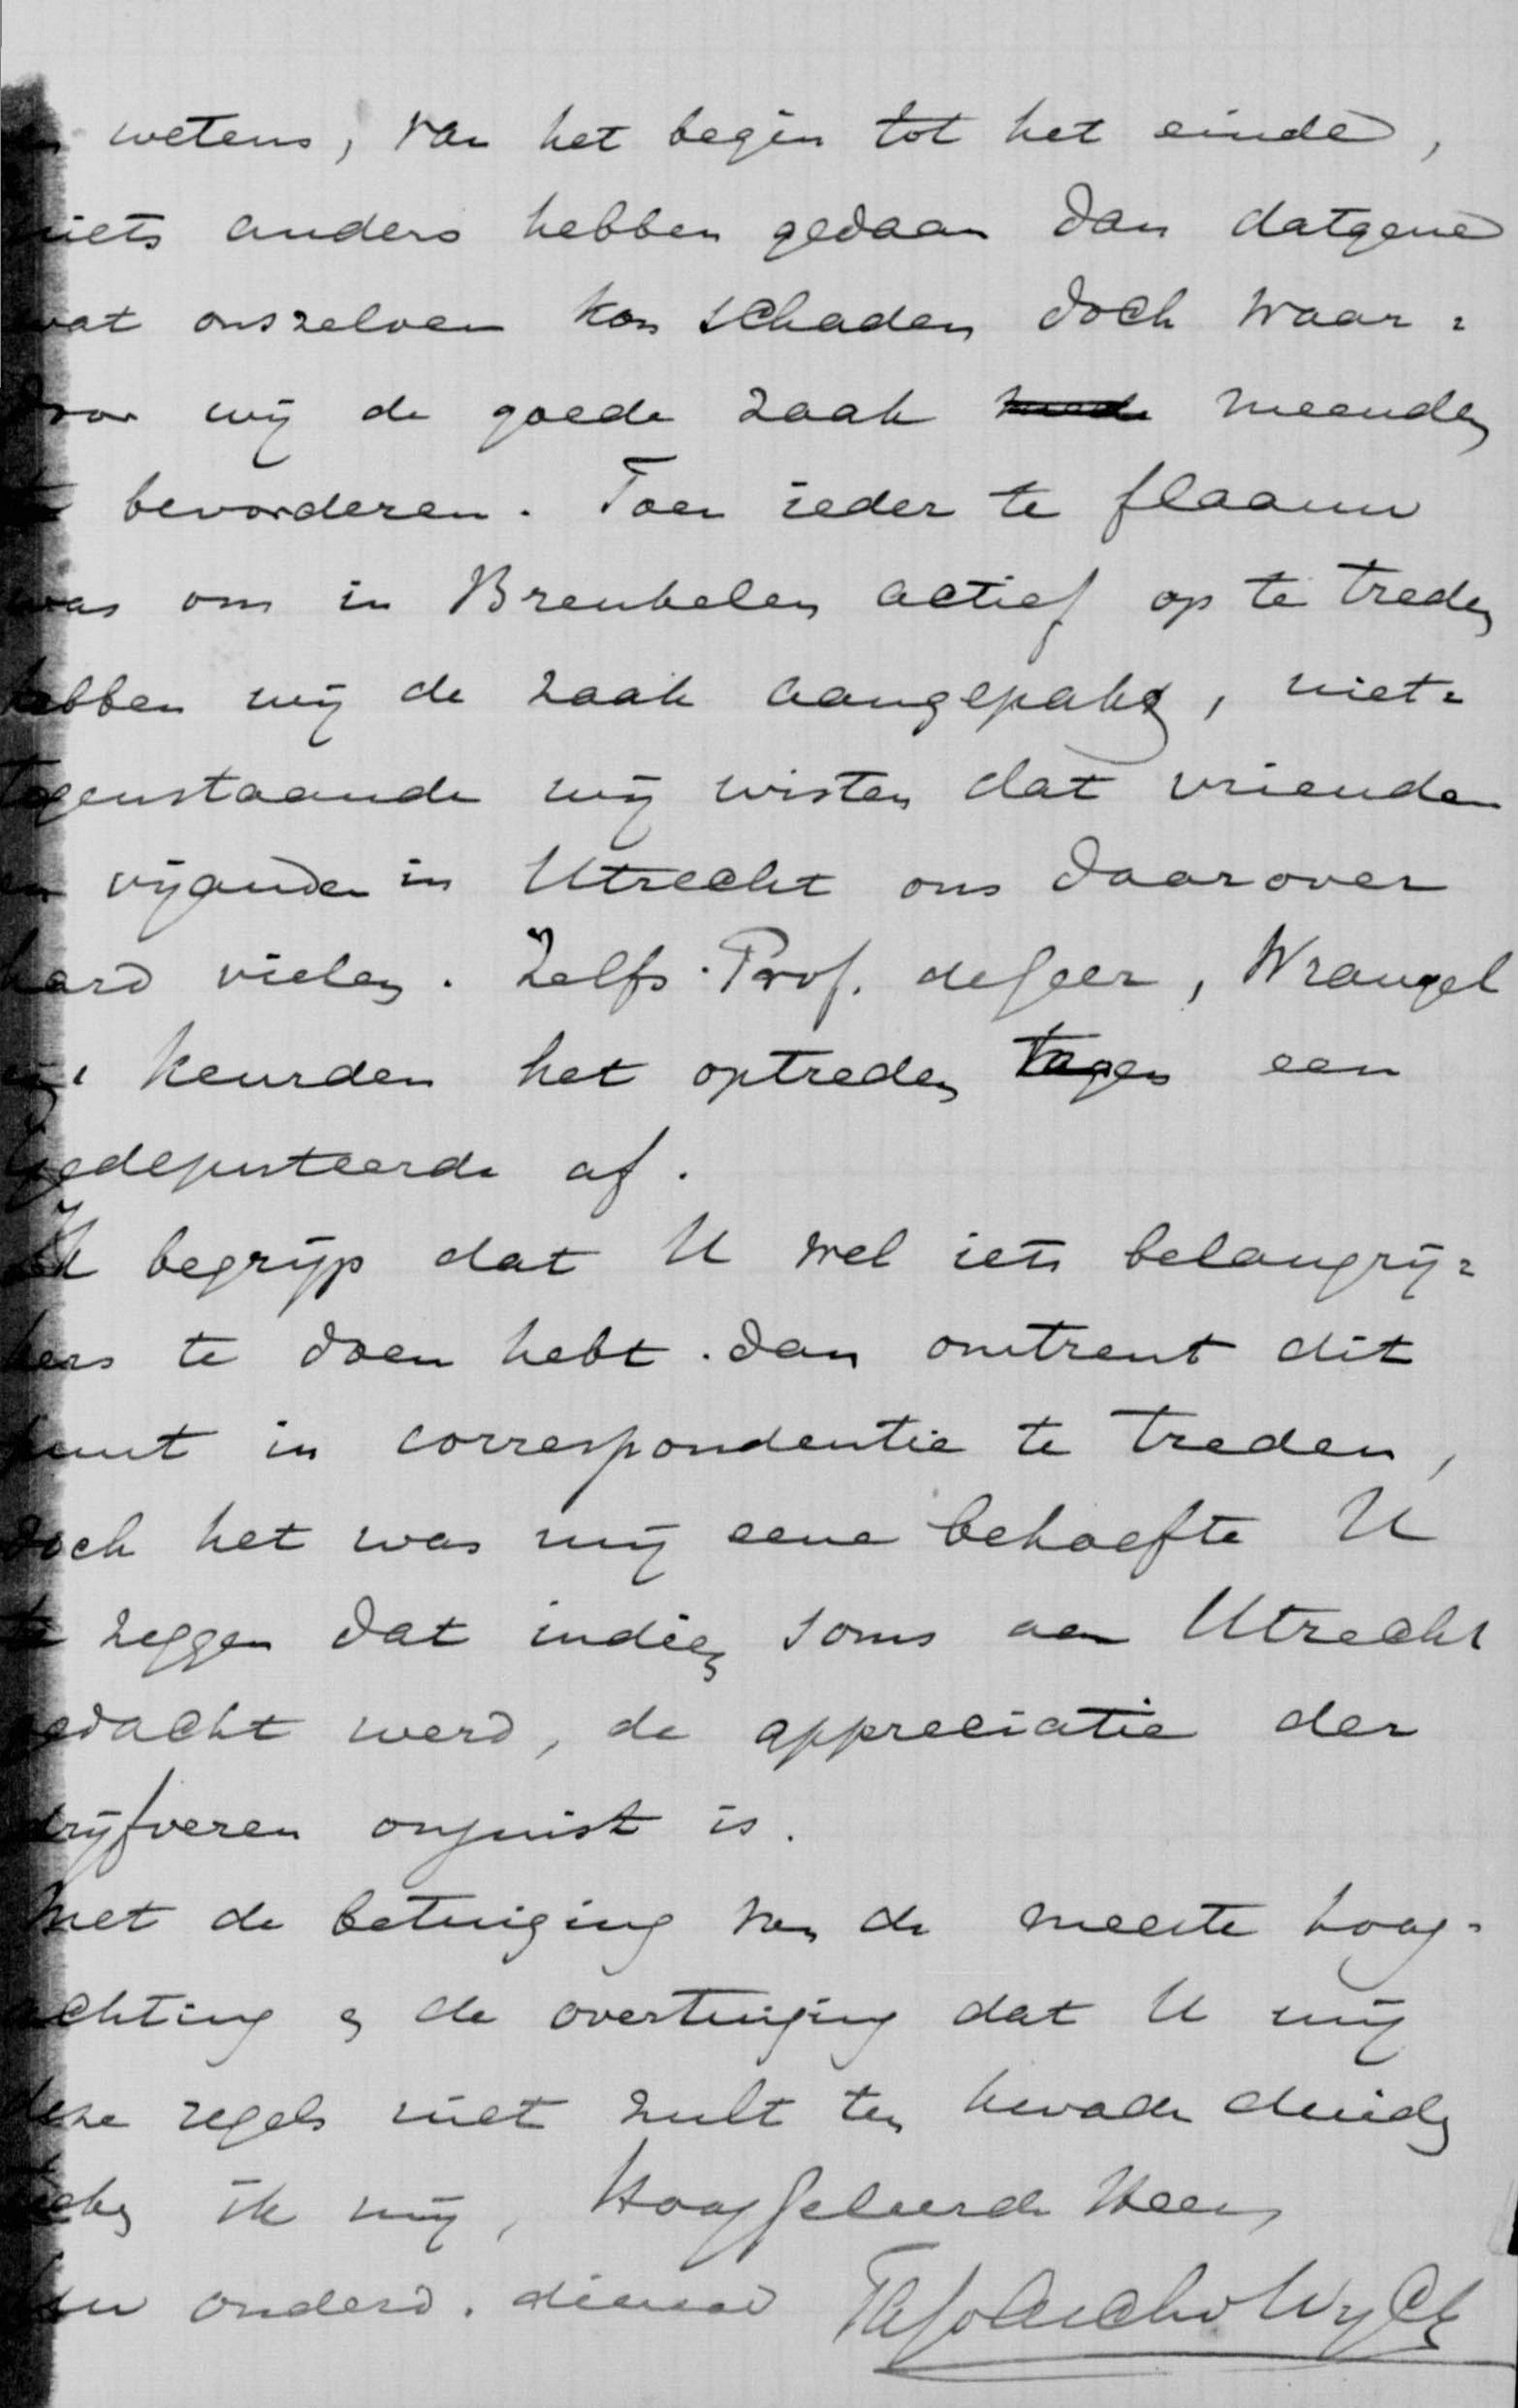 en wetens, van het begin tot het einde,
niets anders hebben gedaan dan datgene
wat onszelven kon schaden doch waar=
door wij de goede zaak meenden
te bevorderen. Toen ieder te flaauw
was om in Breukelen actief op te treden
hebben wij de zaak aangepakt, niet=
tegenstaande wij wisten dat vrienden
en vijanden in Utrecht ons daarover
hard vielen. Zelfs Prof. de Geer, Wrangel
keurden het optreden tegen een
gedeputeerde af.
Ik begrijp dat U wel iets belangrij=
kers te doen hebt dan omtrent dit
punt in correspondentie te treden,
doch het was mij eene behoefte U
te zeggen dat indien soms aan Utrecht
gedacht werd, de appreciatie der
drijfveren onjuist is.
Met de betuiging van de meeste hoog=
achting & de overtuiging dat U mij
deze regels niet zult ten kwade duiden
teeken ik mij, Hooggeleerde Heer,
Uw onderd. dienaar